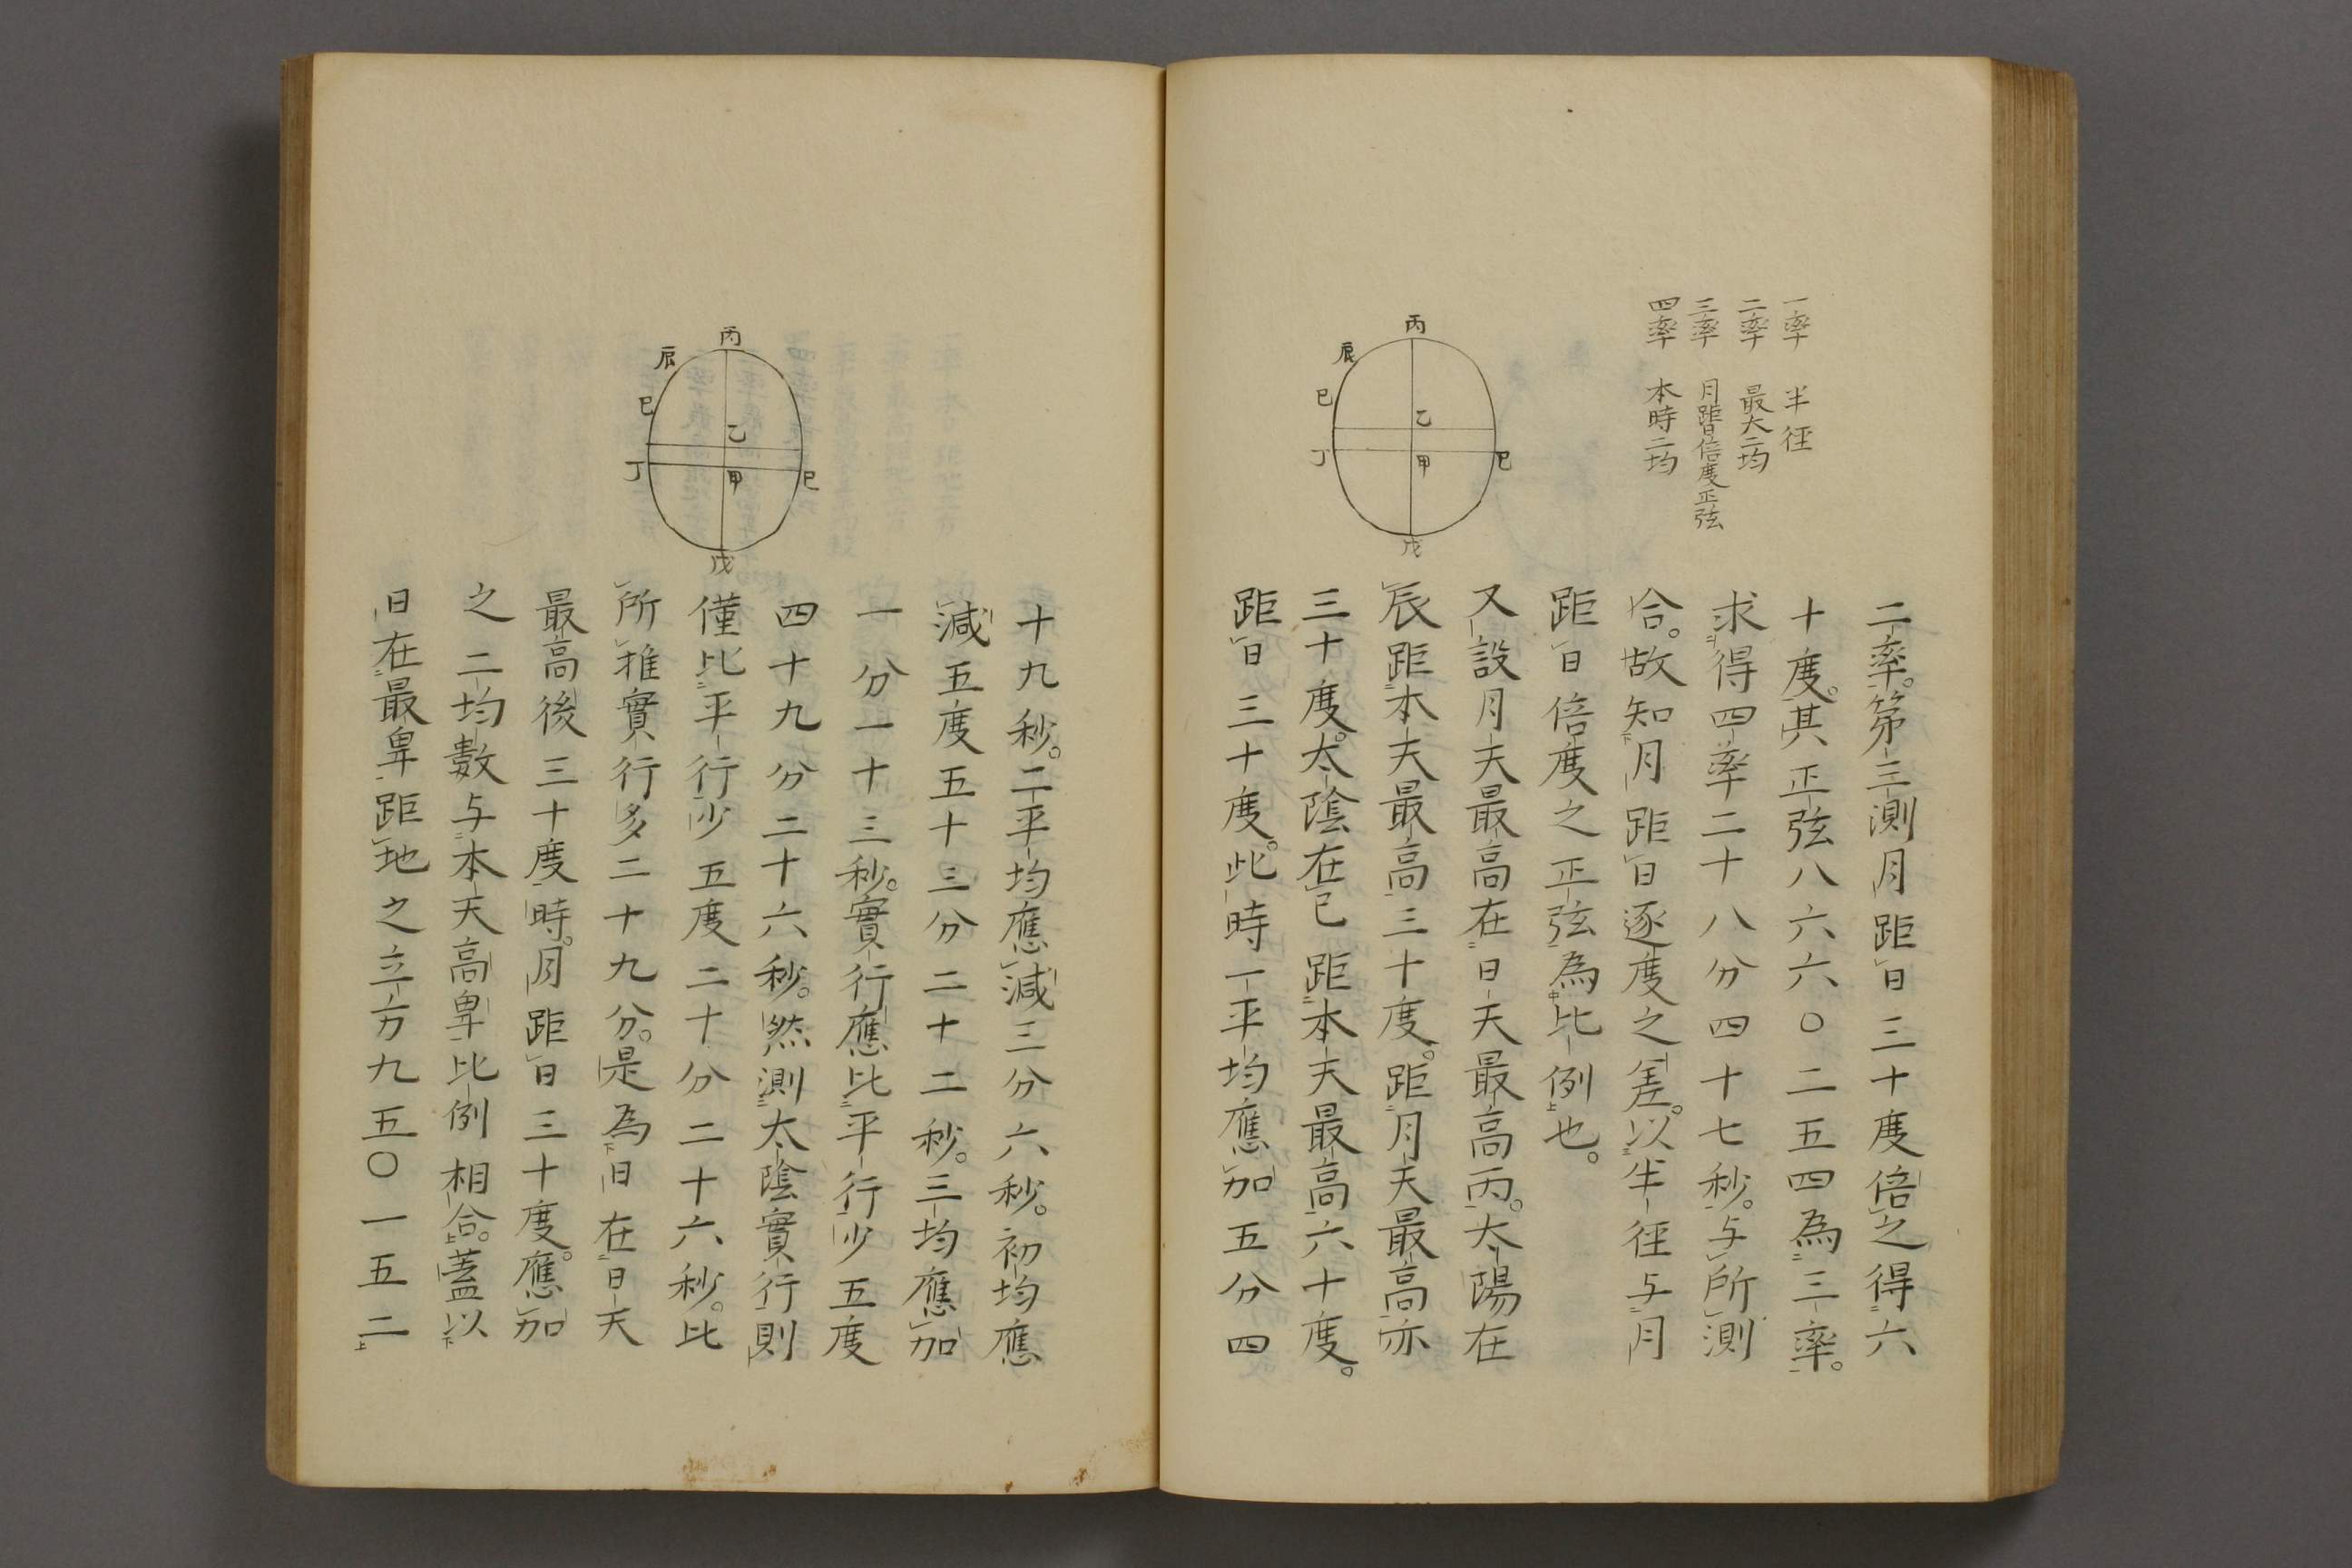 一率 半徑
二率 最大二均
三率 月距日倍度正弦
四率 本時二均
丙
辰
巳
乙
丁
甲
巳
戊
二率。第三測月距日三十度倍之得六
十度。其正弦八六六〇二五四為三率。
求得四率二十八分四十七秒。与所測
合。故知月距日逐度之差。以半徑与月
距日倍度之正弦為比例也。
又設月天最高在日天最高丙。太陽在
辰距本天最高三十度。距月天最高亦
三十度。太陰在巳距本天最高六十度。
距日三十度。此時一平均應加五分四
丙
辰
巳
乙
丁
甲
巳
戊
十九秒。二平均應減三分六秒。初均應
減五度五十三分二十二秒。三均應加
一分一十三秒。實行應比平行少五度
四十九分二十六秒。然測太陰實行則
僅比平行少五度二十分二十六秒。比
所推實行多二十九分。是為日在日天
最高後三十度時。月距日三十度。應加
之二均數与本天高卑比例相合。蓋以
日在最卑距地之立方九五〇一五二